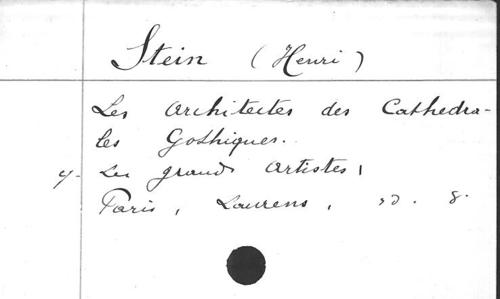 Stein (Henri)
Les Architectes des Cathedra-
les Gothiques.
y- Les grands Artistes,
Paris, Laurens, sd. 8.